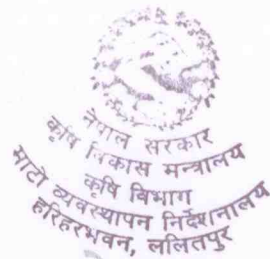 नेपाल सरकार
कृषि विकास मन्त्रालय
कृषि विभाग
माटो व्यवस्थापन निर्देशनालय
हरिहरभवन, ललितपुर